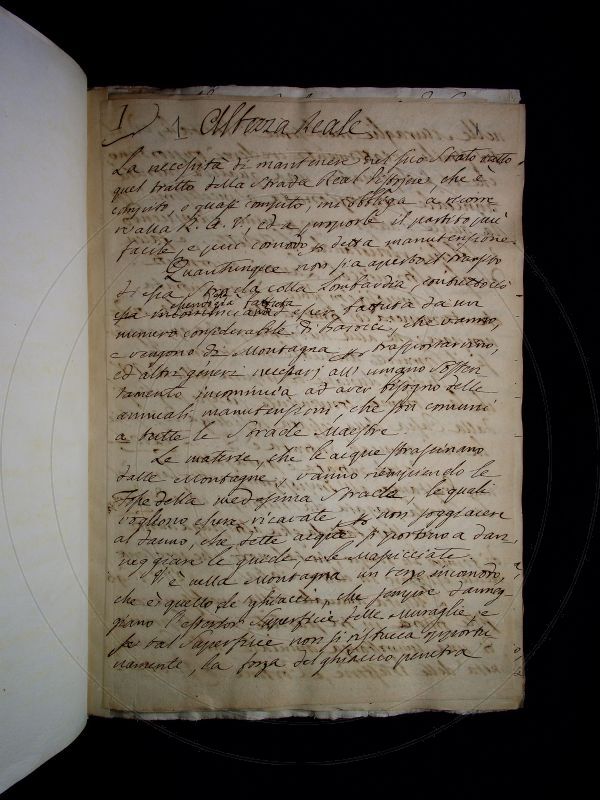 1 1 Altezza Reale
La necessità di mantenere nel suo Stato
quel tratto della Strada Real Pistojese, che è
compito, o quasi compito, mi obbliga a ricorre
re alla R. A. V., ed a proporle il partito più
facile, e più comodo detta manutenzione
Quantunque non sia aperto il transito
di essa Strada colla Lombardia,
numero considerabile di Barocce, che vanno,
e vengono di Montagna
ed altri generi necessarj all' umano Sosten
tamento incomincia ad aver bisogno delle
annuali manutenzioni, che son comuni
a tutte le Strade Maestre
Le materie, che le acque strascinano
dalle Montagne, vanno riempiendo le
Fosse della medesima Strada, le quali
vogliono essere ricavate non soggiacere
al danno, che dette acque si portino a dan
neggiare le guide, e le Massicciate
Vi è nella Montagna un terzo incomodo,
che è quello de' ghiacci, che sempre danneg
giano l'esterior Superficie delle Muraglie, e
se tal Superficie non si ristucca opportu
namente, la forza del ghiaccio penetra